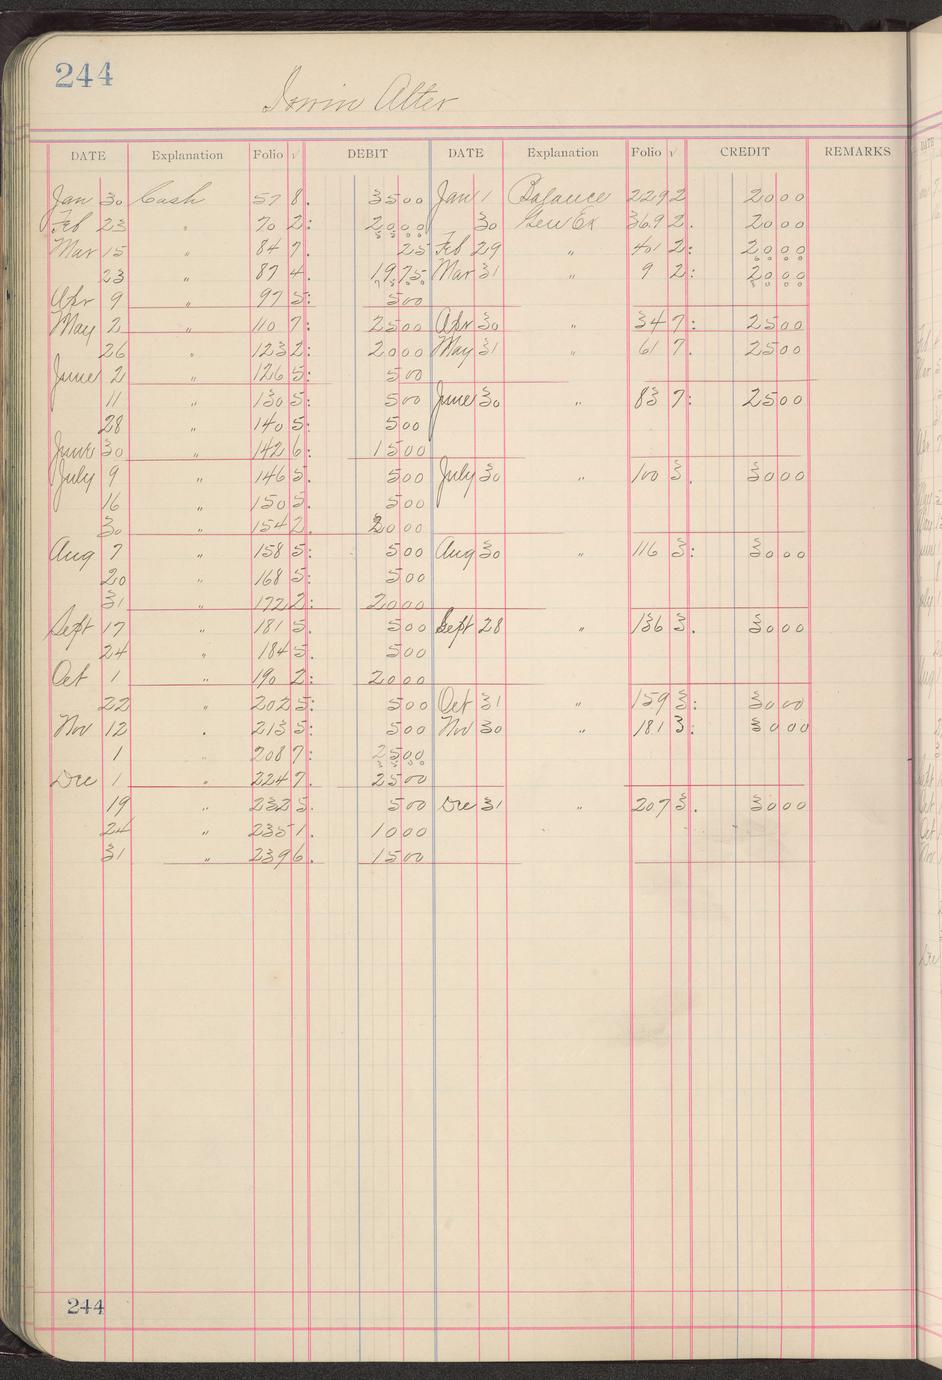 244
Irwin Alter
DATE Explanation Folio √ DEBIT DATE Explanation Folio √ CREDIT REMARKS
Jan 30 Cash 57 8. 3500 Jan 1 Balance 229 2 2000
Feb 23 " 70 2: 2000 30 Gen Ex 369 2. 2000
Mar 15 " 84 7. 25 Feb 29 " 401 2: 2000
23 " 87 4. 1975 Mar 31 " 9 2: 2000
Apr 9 " 97 5: 500
May 2 " 110 7: 2500 Apr 30 " 34 7: 2500
26 " 123 2: 2000 May 31 " 61 7. 2500
June 2 " 126 5: 500
11 " 130 5: 500 June 30 " 83 7: 2500
28 " 140 5: 500
June 30 " 142 6: 1500
July 9 " 146 5. 500 July 30 " 100 3. 3000
16 " 150 5. 500
30 " 154 2. 2000
Aug 7 " 158 5: 500 Aug 30 " 116 3: 3000
20 " 168 5: 500
31 " 172 2: 2000
Sept 17 " 181 5. 500 Sept 28 " 136 3. 3000
24 " 184 5. 500
Oct 1 " 190 2: 2000
22 " 202 5: 500 Oct 31 " 159 3: 3000
Nov 12 " 213 5: 500 Nov 30 " 181 3: 3000
1 " 208 7: 2500
Dec 1 " 224 7. 2500
19 " 232 5. 500 Dec 31 " 207 3. 3000
24 " 235 1. 1000
31 " 239 6. 1500
244